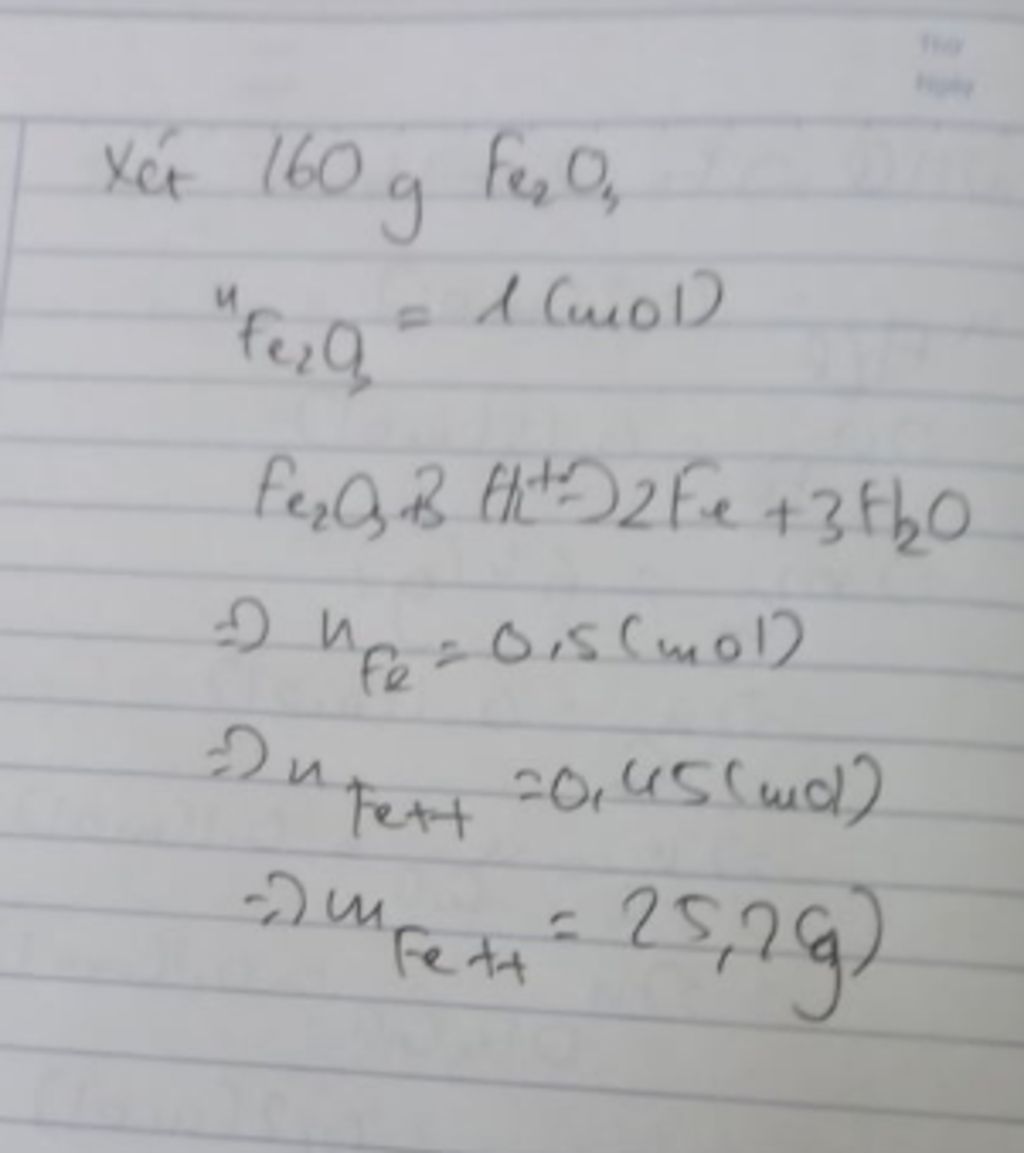 Thứ
Ngày
Xét 160 g Fe₂O₃
n Fe₂O₃ = 1 (mol)
Fe₂O₃ + 3 H₂ t⁰→ 2Fe + 3H₂O
=> n Fe = 0,5 (mol)
=> n Fe++ = 0,45 (mol)
=> m Fe++ = 25,2 (g)